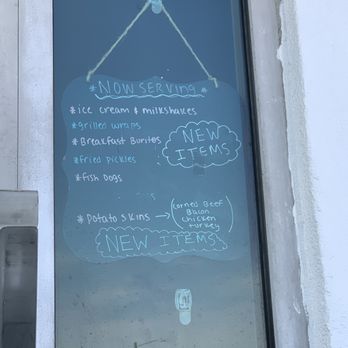 *NOW SERVING*
*ice cream & milkshakes
*grilled wraps
*Breakfast Buritos
NEW
ITEMS
*fried pickles
*fish Dogs
*Potato skins → (Corned Beef
Bacon
chicken
turkey)
NEW ITEMS